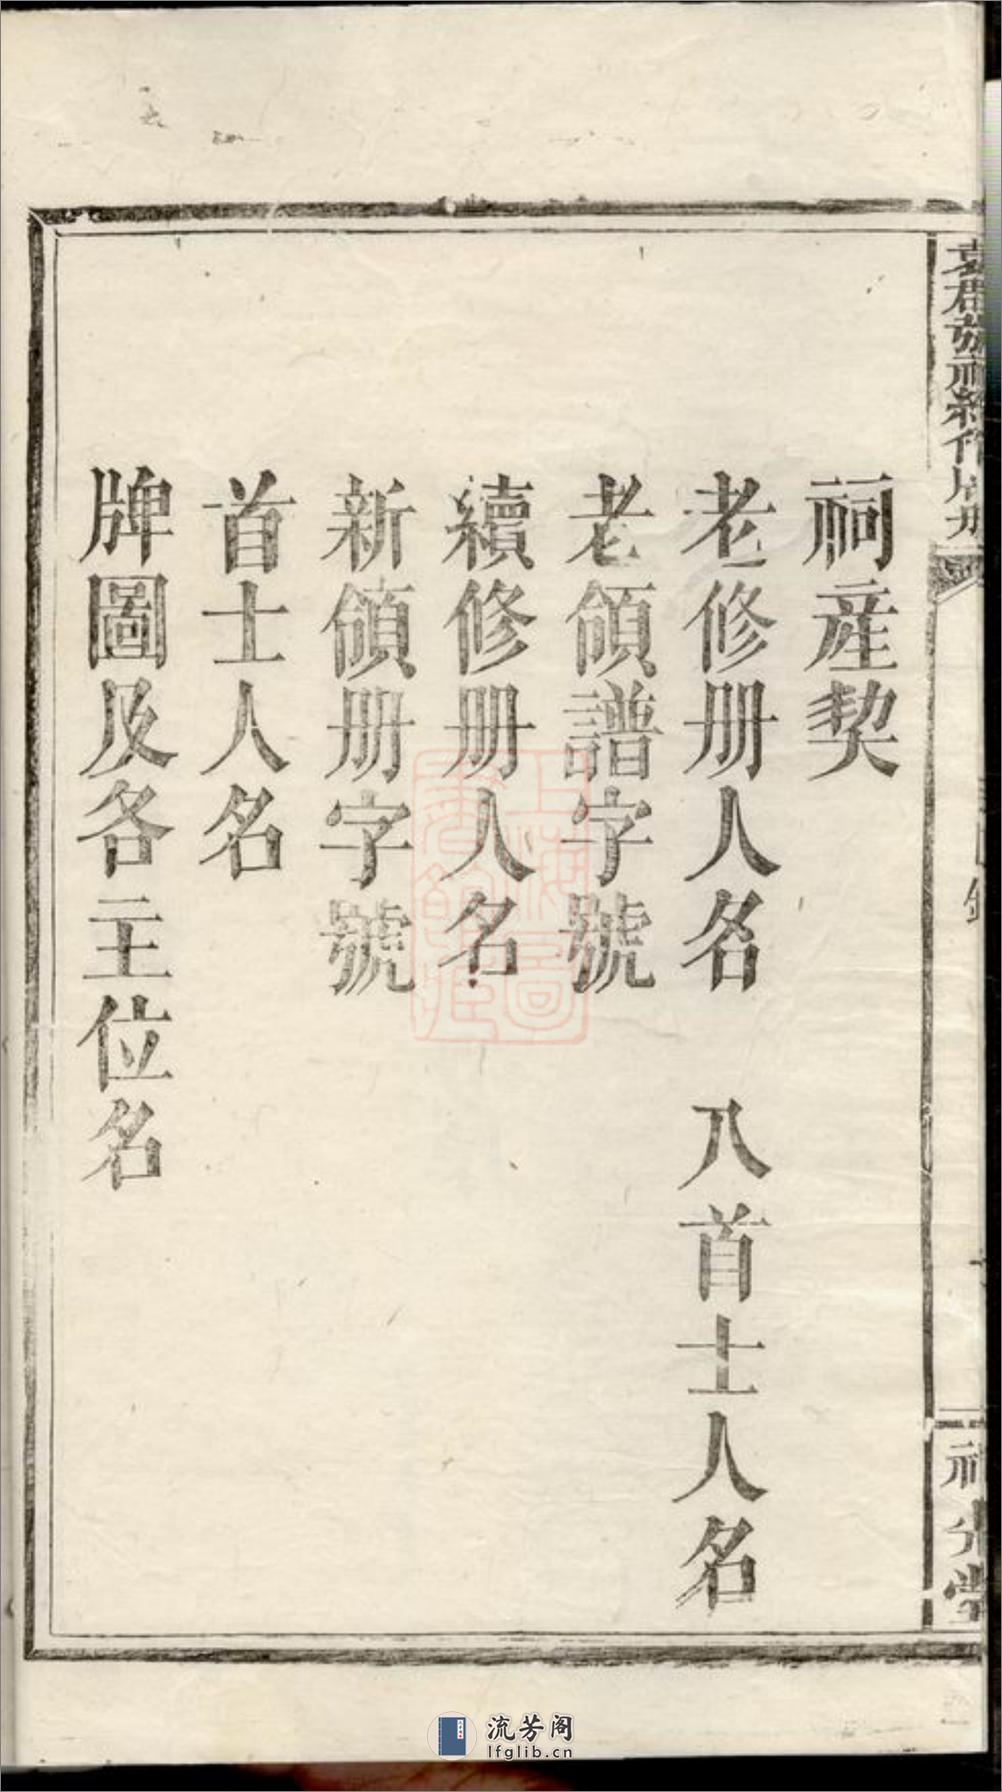 祠産契
老修册人名　八首士人名
老領譜字號
續修册人名
新領册字號
首士人名
牌圖及各主位名
流芳阁
lfglib.cn